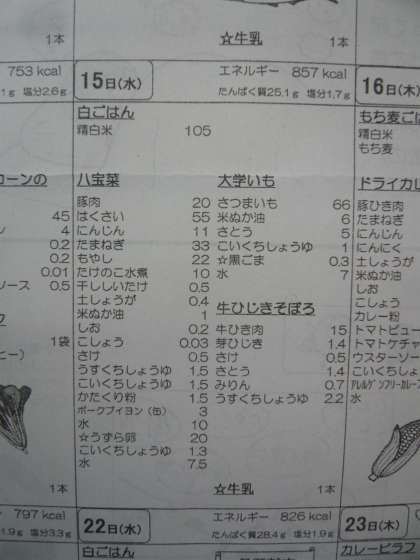 1本
☆牛乳
1本
753 kcal
1g 塩分2.6g
15日(水)
エネルギー 857 kcal
たんぱく質25.1g 塩分1.7g
16日(木)
白ごはん
精白米 105
もち麦ごは
精白米
もち麦
コーンの
45
4
0.2
0.2
0.01
ソース 0.5
1袋
ヒー)
1本
八宝菜
豚肉 20
はくさい 55
にんじん 11
たまねぎ 33
もやし 22
たけのこ水煮 10
干ししいたけ 0.5
土しょうが 0.4
米ぬか油 1
しお 0.2
こしょう 0.03
さけ 0.5
うすくちしょうゆ 1.5
こいくちしょうゆ 1.5
かたくり粉 1.5
ポークブイヨン(缶) 3
水 10
☆うずら卵 20
こいくちしょうゆ 1.3
水 7.5
大学いも
さつまいも 66
米ぬか油 6
さとう 5
こいくちしょうゆ 1
☆黒ごま 0.3
水 7
牛ひじきそぼろ
牛ひき肉 15
芽ひじき 1.4
さけ 0.5
さとう 1.4
みりん 0.7
うすくちしょうゆ 2.2
☆牛乳 1本
ドライカレ
豚ひき肉
たまねぎ
にんじん
にんにく
土しょうが
米ぬか油
しお
こしょう
カレー粉
トマトピュー
トマトケチャ
ウスターソー
こいくちしょ
アレルゲンフリーカレーフ
水
797 kcal
1.9g 塩分3.3g
22日(水)
エネルギー 826 kcal
たんぱく質28.4g 塩分1.9g
23日(木)
白ごはん
カレーピラフ